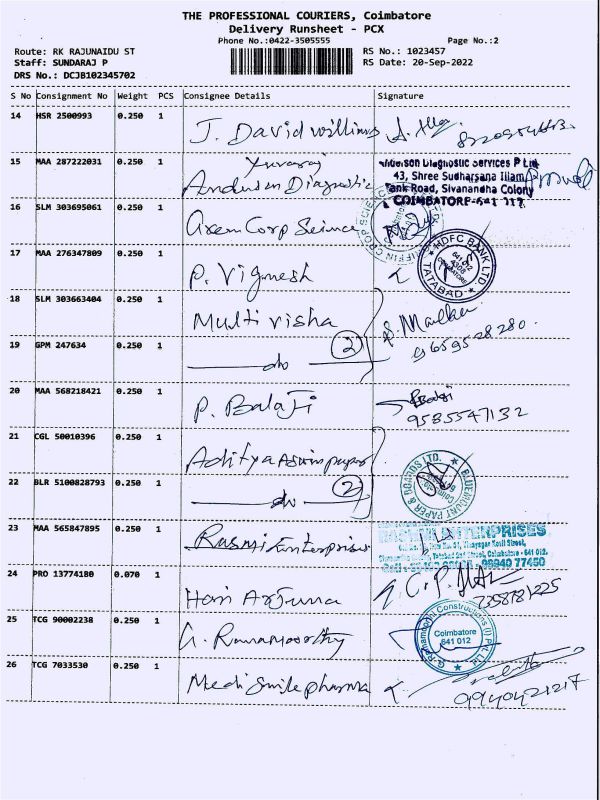 THE PROFESSIONAL COURIERS, Coimbatore
Delivery Runsheet - PCX
Phone No.:0422-3505555
Page No.:2
Route: RK RAJUNAIDU ST
RS No.: 1023457
Staff: SUNDARAJ P
RS Date: 20-Sep-2022
DRS No.: DCJB102345702
S No Consignment No Weight PCS Consignee Details Signature
14 HSR 2500993 0.250 1 J. David Williams
15 MAA 287222031 0.250 1 Yuvaraj
Anderson Diagnostic
Anderson Diagnostic Services P Ltd
43, Shree Sudharsana Illam,
Tank Road, Sivanandha Colony
COIMBATORE-641 012
16 SLM 303695061 0.250 1
CROP SCIENCE
17 MAA 276347809 0.250 1 P. Vignesh
HDFC BANK LTD
641 012
4308
COIMBATORE
TATABAD
18 SLM 303663404 0.250 1 Multi visha
19 GPM 247634 0.250 1 do 2
9659528280
20 MAA 568218421 0.250 1 P. Balaji
Balaji
9585547132
21 CGL 50010396 0.250 1 Aditya Aswin paper
22 BLR 5100828793 0.250 1 do 2
BLUEMOUNT PAPER & BOARDS LTD.
23 MAA 565847895 0.250 1 Rasmi Enterprises
ENTERPRISES
99940 77450
24 PRO 13774180 0.070 1 Hari Arjuna
25 TCG 90002238 0.250 1 G. Ramamoorthy
G. Ramamoorthi Constructions (I) Pvt. Ltd
Coimbatore
641 012
26 TCG 7033530 0.250 1 Medi Smile pharma
9940421217